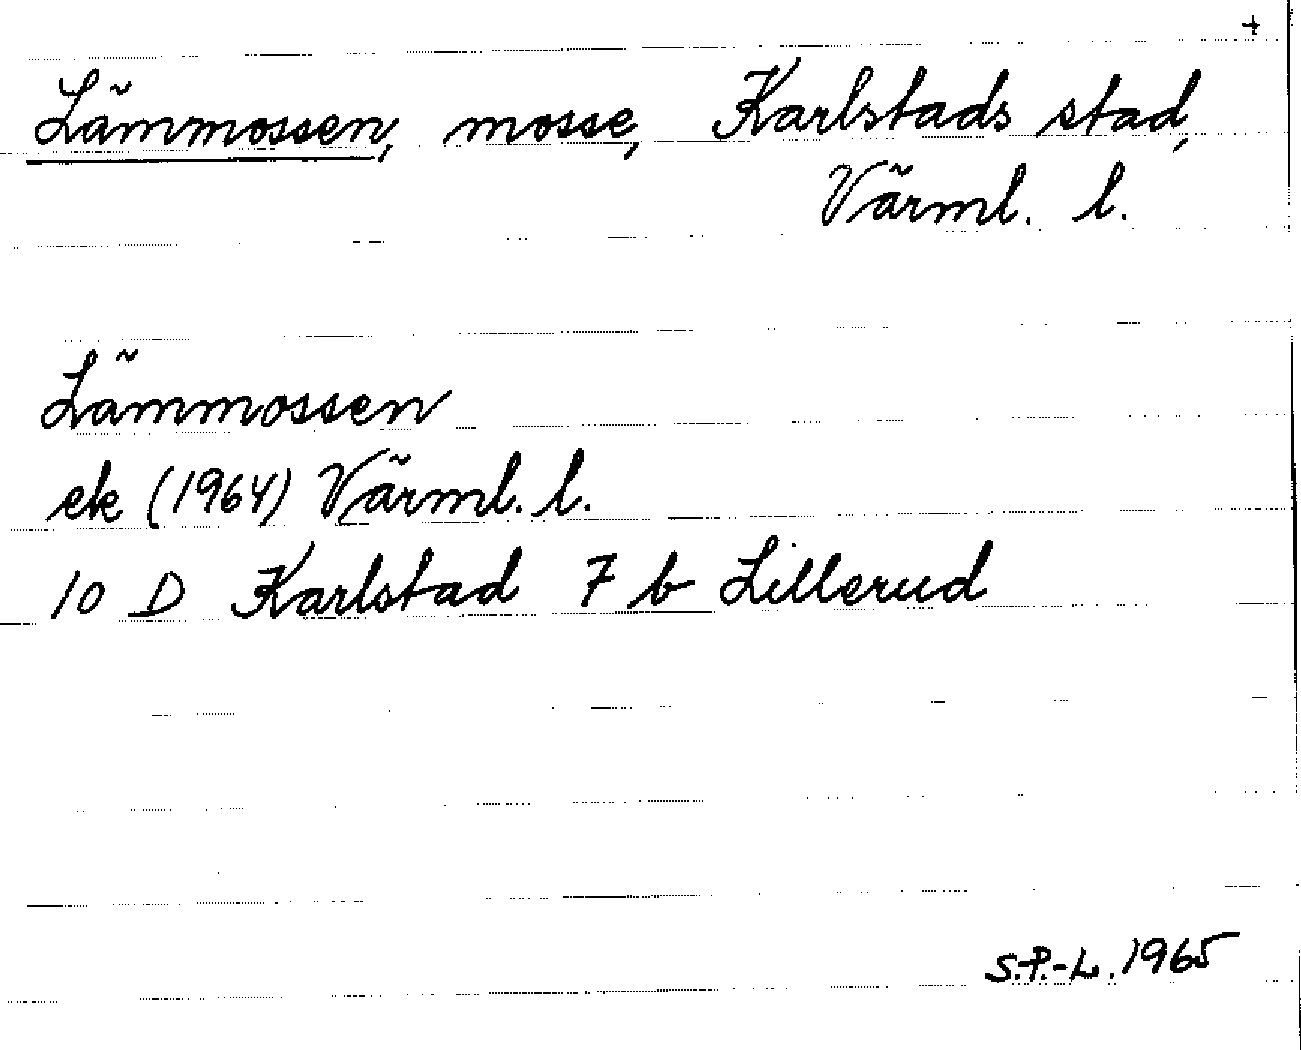 +
Lämmossen, mosse, Karlstads stad,
Värml. l.
Lämmossen
ek (1964) Värml. l.
10 D Karlstad 7 b Lillerud
S.P.-L. 1965